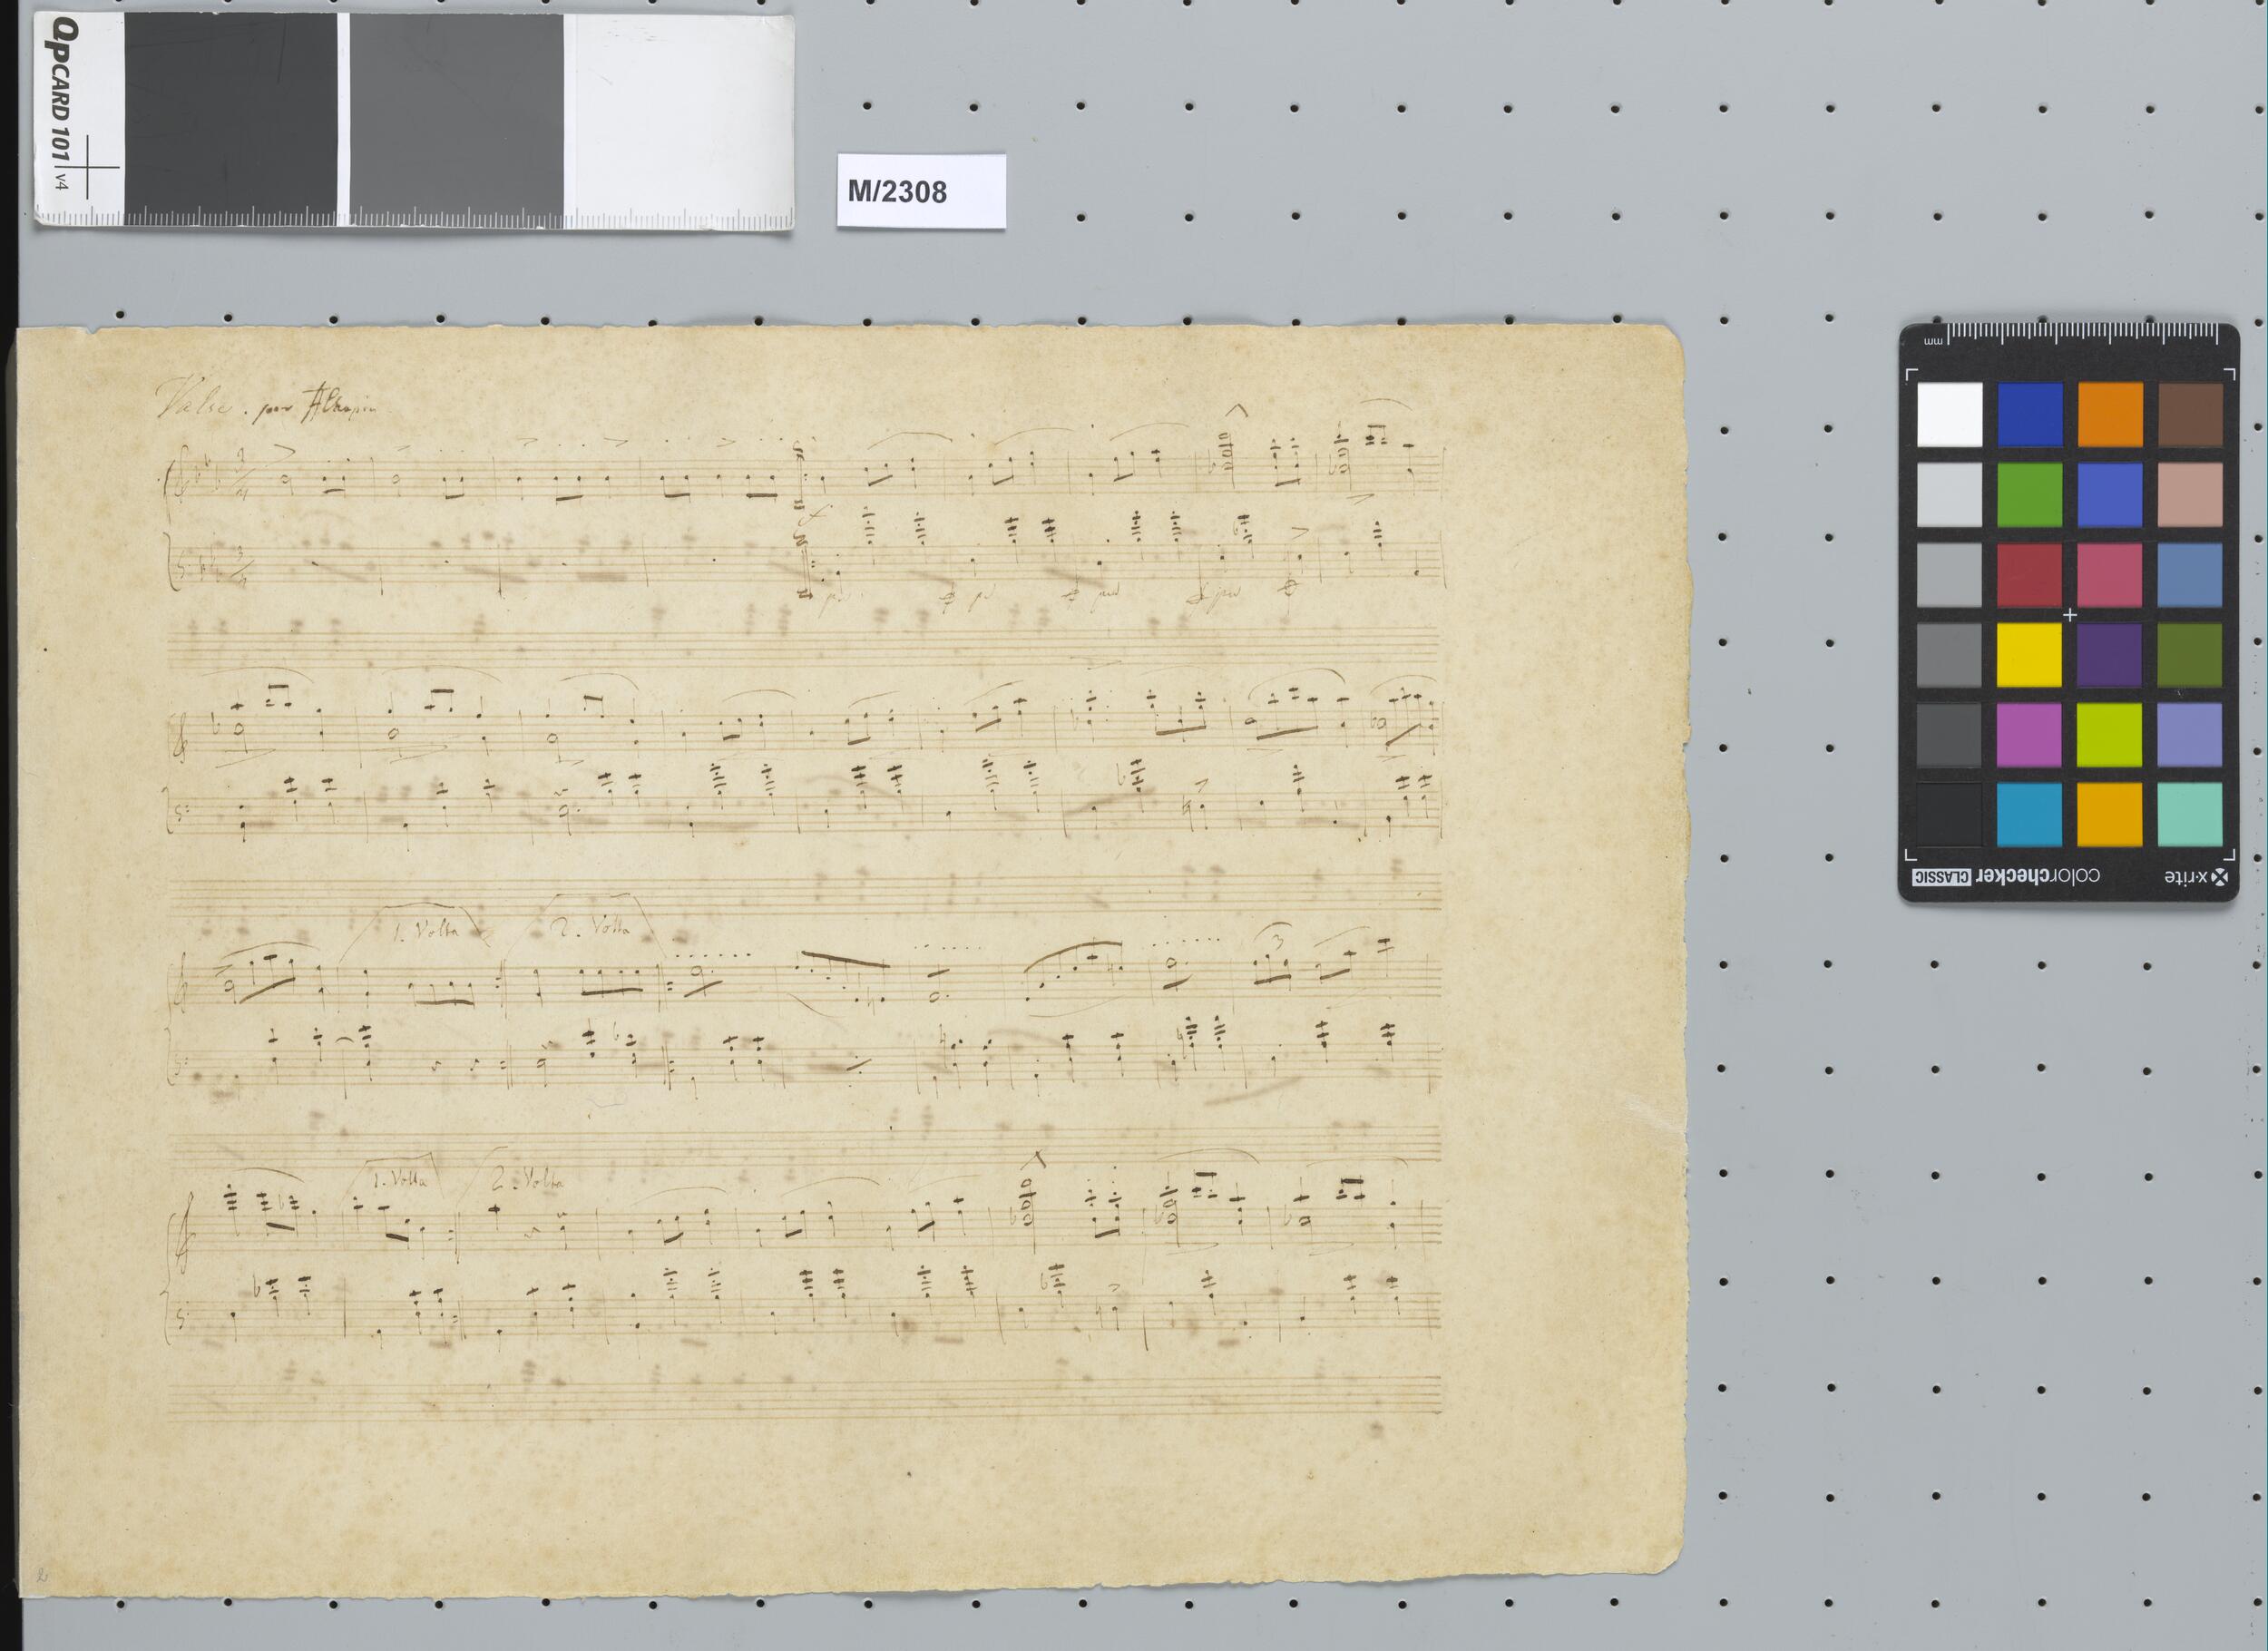 QPCARD 101 v4
M/2308
mm
colorchecker CLASSIC
x-rite
Valse. par FChopin
3/4
3/4
1. Volta
2. Volta
3
1. Volta
2. Volta
2